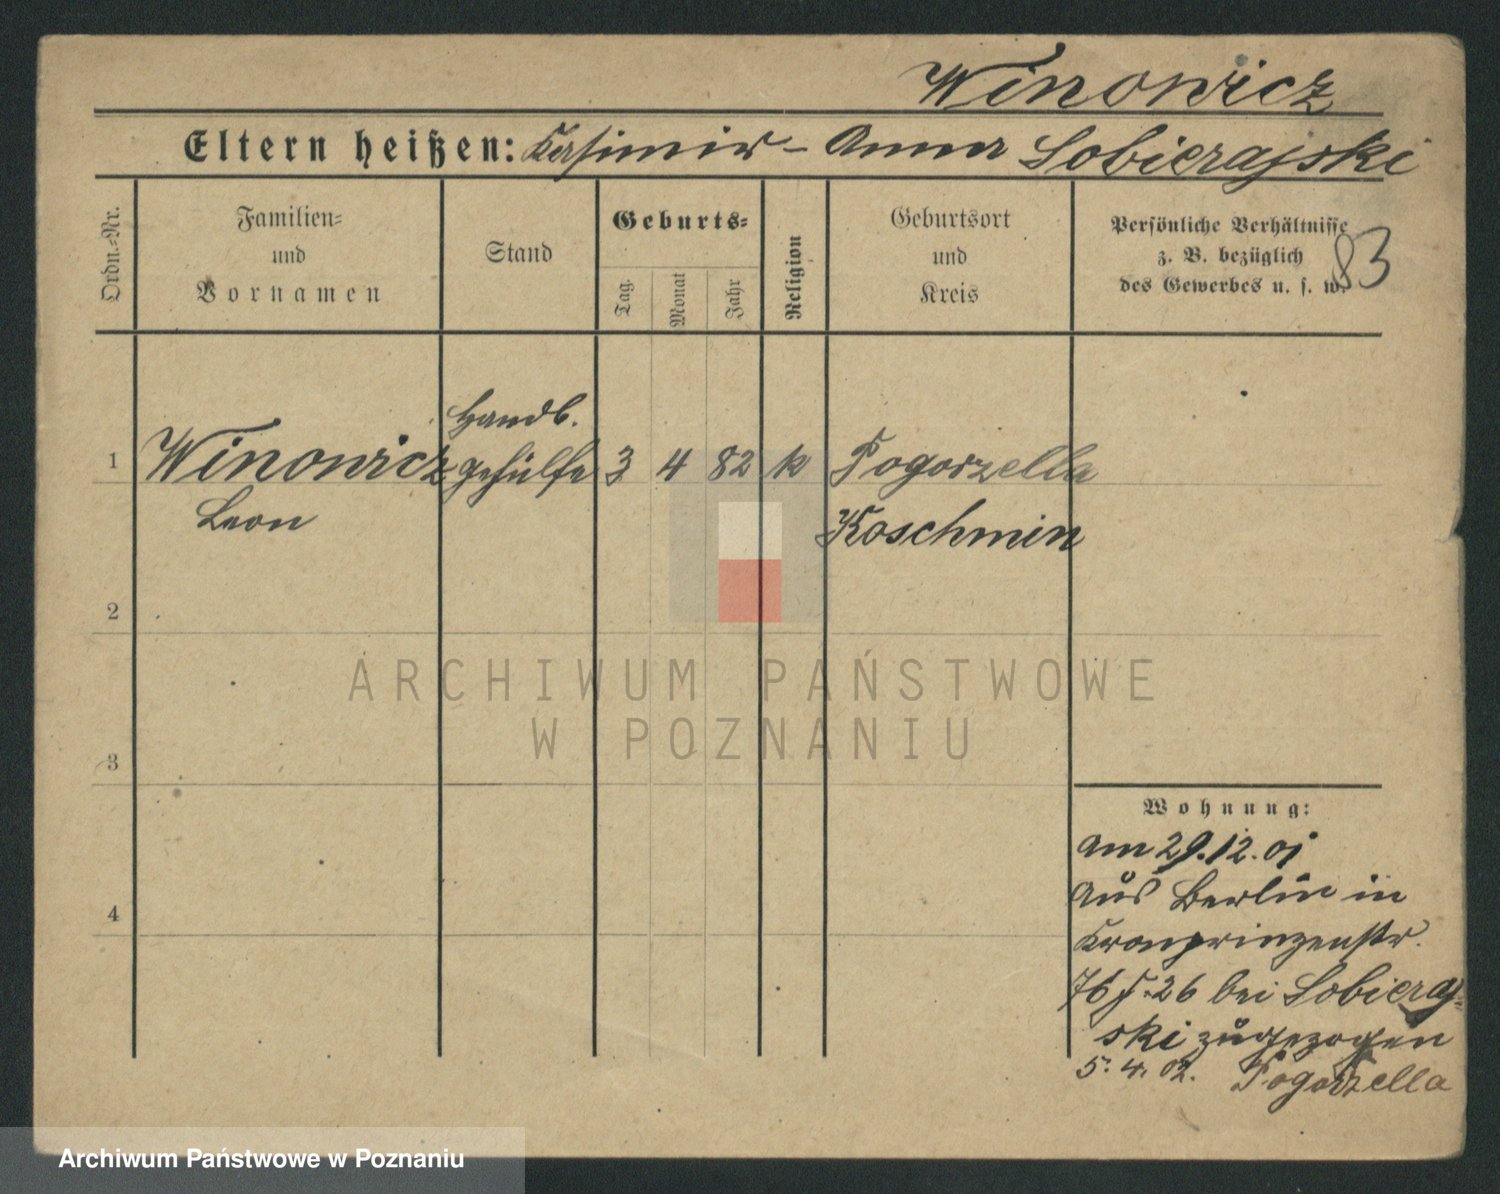 Winowicz
Eltern heißen: Kasimir - Anna Sobierajski
Ordn.-Nr.
Familien-
und
Vornamen
Stand
Geburts-
Tag.
Monat
Jahr
Religion
Geburtsort
und
Kreis
Persönliche Verhältnisse
z. B. bezüglich
des Gewerbes u. s. w.
83
1 Winowicz Handl. gehülfe 3 4 82 k Pogorzella
Leon Koschmin
2
3
4
Wohnung:
am 29.12.01
aus Berlin in
Kronprinzenstr.
26 bei Sobieraj-
ski zugezogen
5.4.02. Pogorzella
ARCHIWUM PAŃSTWOWE
W POZNANIU
Archiwum Państwowe w Poznaniu